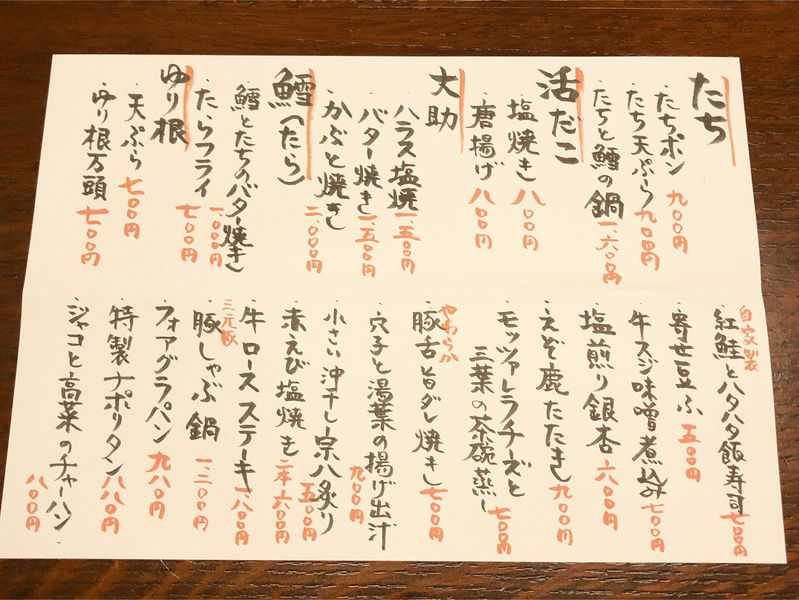 たち
・たちポン 九〇〇円
・たち天ぷら 九〇〇円
・たちと鱈の鍋 一、六〇〇円
活だこ
・塩焼き 八〇〇円
・唐揚げ 八〇〇円
大助
・ハラス塩焼 一、五〇〇円
・バター焼き 一、五〇〇円
・かぶと焼き 二、〇〇〇円
鱈(たら)
・鱈とたちのバター焼き 一、〇〇〇円
・たらフライ 七〇〇円
ゆり根
・天ぷら 七〇〇円
・ゆり根万頭 七〇〇円
自家製
・紅鮭とハタハタ飯寿司 七〇〇円
・寄せ豆ふ 五〇〇円
・牛スジ味噌煮込み 七〇〇円
・塩煎り銀杏 六〇〇円
・えぞ鹿たたき 九〇〇円
・モッツァレラチーズと
三葉の茶碗蒸し 七〇〇円
やわらか
・豚舌旨ダレ焼き 七〇〇円
・穴子と湯葉の揚げ出汁 九〇〇円
・小さい沖干し宗八炙り 五〇〇円
・赤えび塩焼き 二本 六〇〇円
・牛ロースステーキ 一、八〇〇円
三元豚
・豚しゃぶ鍋 一、二〇〇円
・フォアグラパン 九八〇円
・特製ナポリタン 八八〇円
・ジャコと高菜のチャーハン 八〇〇円